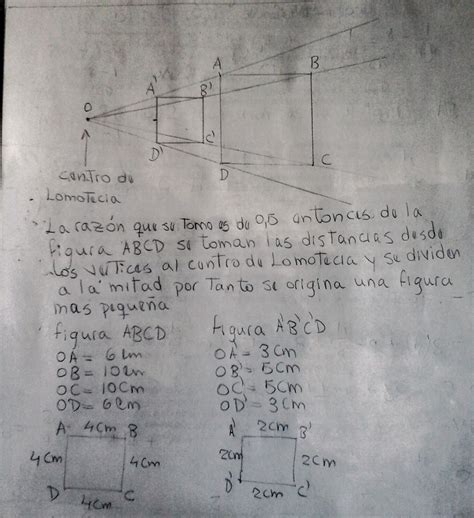 A B
A' B'
O
D' C'
D C
centro de
Lomotecia
La razón que se Tomo es de 0,5 entonces de la
figura ABCD se toman las distancias desde
los vertices al centro de Lomotecia y se dividen
a la mitad por Tanto se origina una figura
mas pequeña
figura ABCD figura A'B'C'D
OA = 6cm OA' = 3cm
OB = 10cm OB' = 5cm
OC = 10cm OC' = 5cm
OD = 6cm OD' = 3cm
A 4cm B A' 2cm B'
4cm 4cm 2cm 2cm
D 4cm C D' 2cm C'